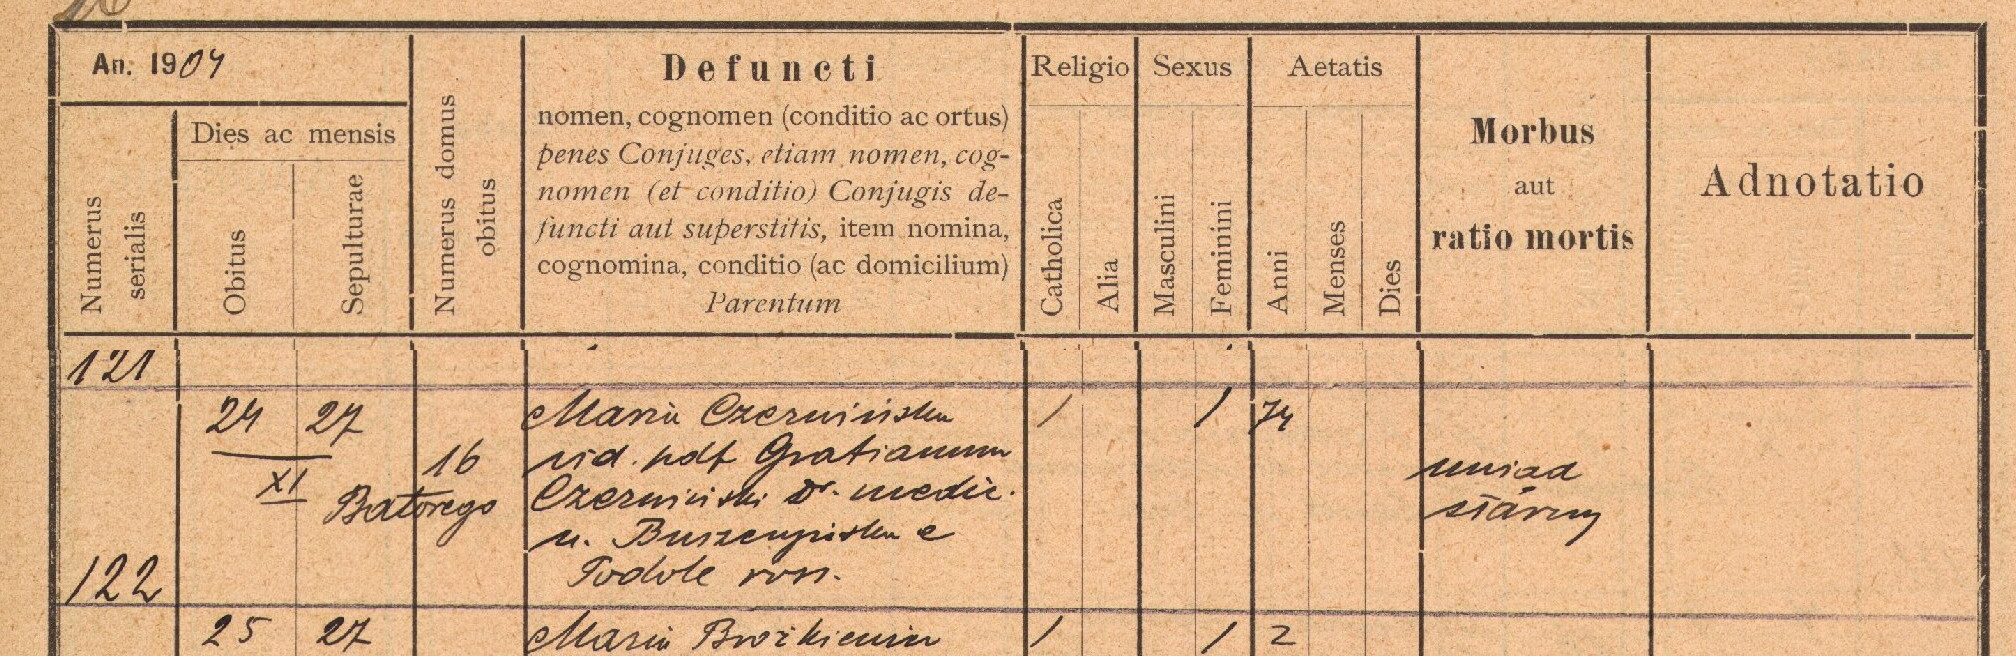 An. 1904
Numerus serialis
Dies ac mensis
Obitus
Sepulturae
Numerus domus obitus
Defuncti
nomen, cognomen (conditio ac ortus)
penes Conjuges, etiam nomen, cog-
nomen (et conditio) Conjugis de-
functi aut superstitis, item nomina,
cognomina, conditio (ac domicilium)
Parentum
Religio
Catholica
Alia
Sexus
Masculini
Feminini
Aetatis
Anni
Menses
Dies
Morbus
aut
ratio mortis
Adnotatio
121
24 27 Maria Czerwińska 1 1 74
16 vid. post Gratianum uwiąd
XI Batorego Czerwiński Dr. medic. starczy
n. Buszczyńska e
122 Podole ross.
25 27 Maria 1 1 2